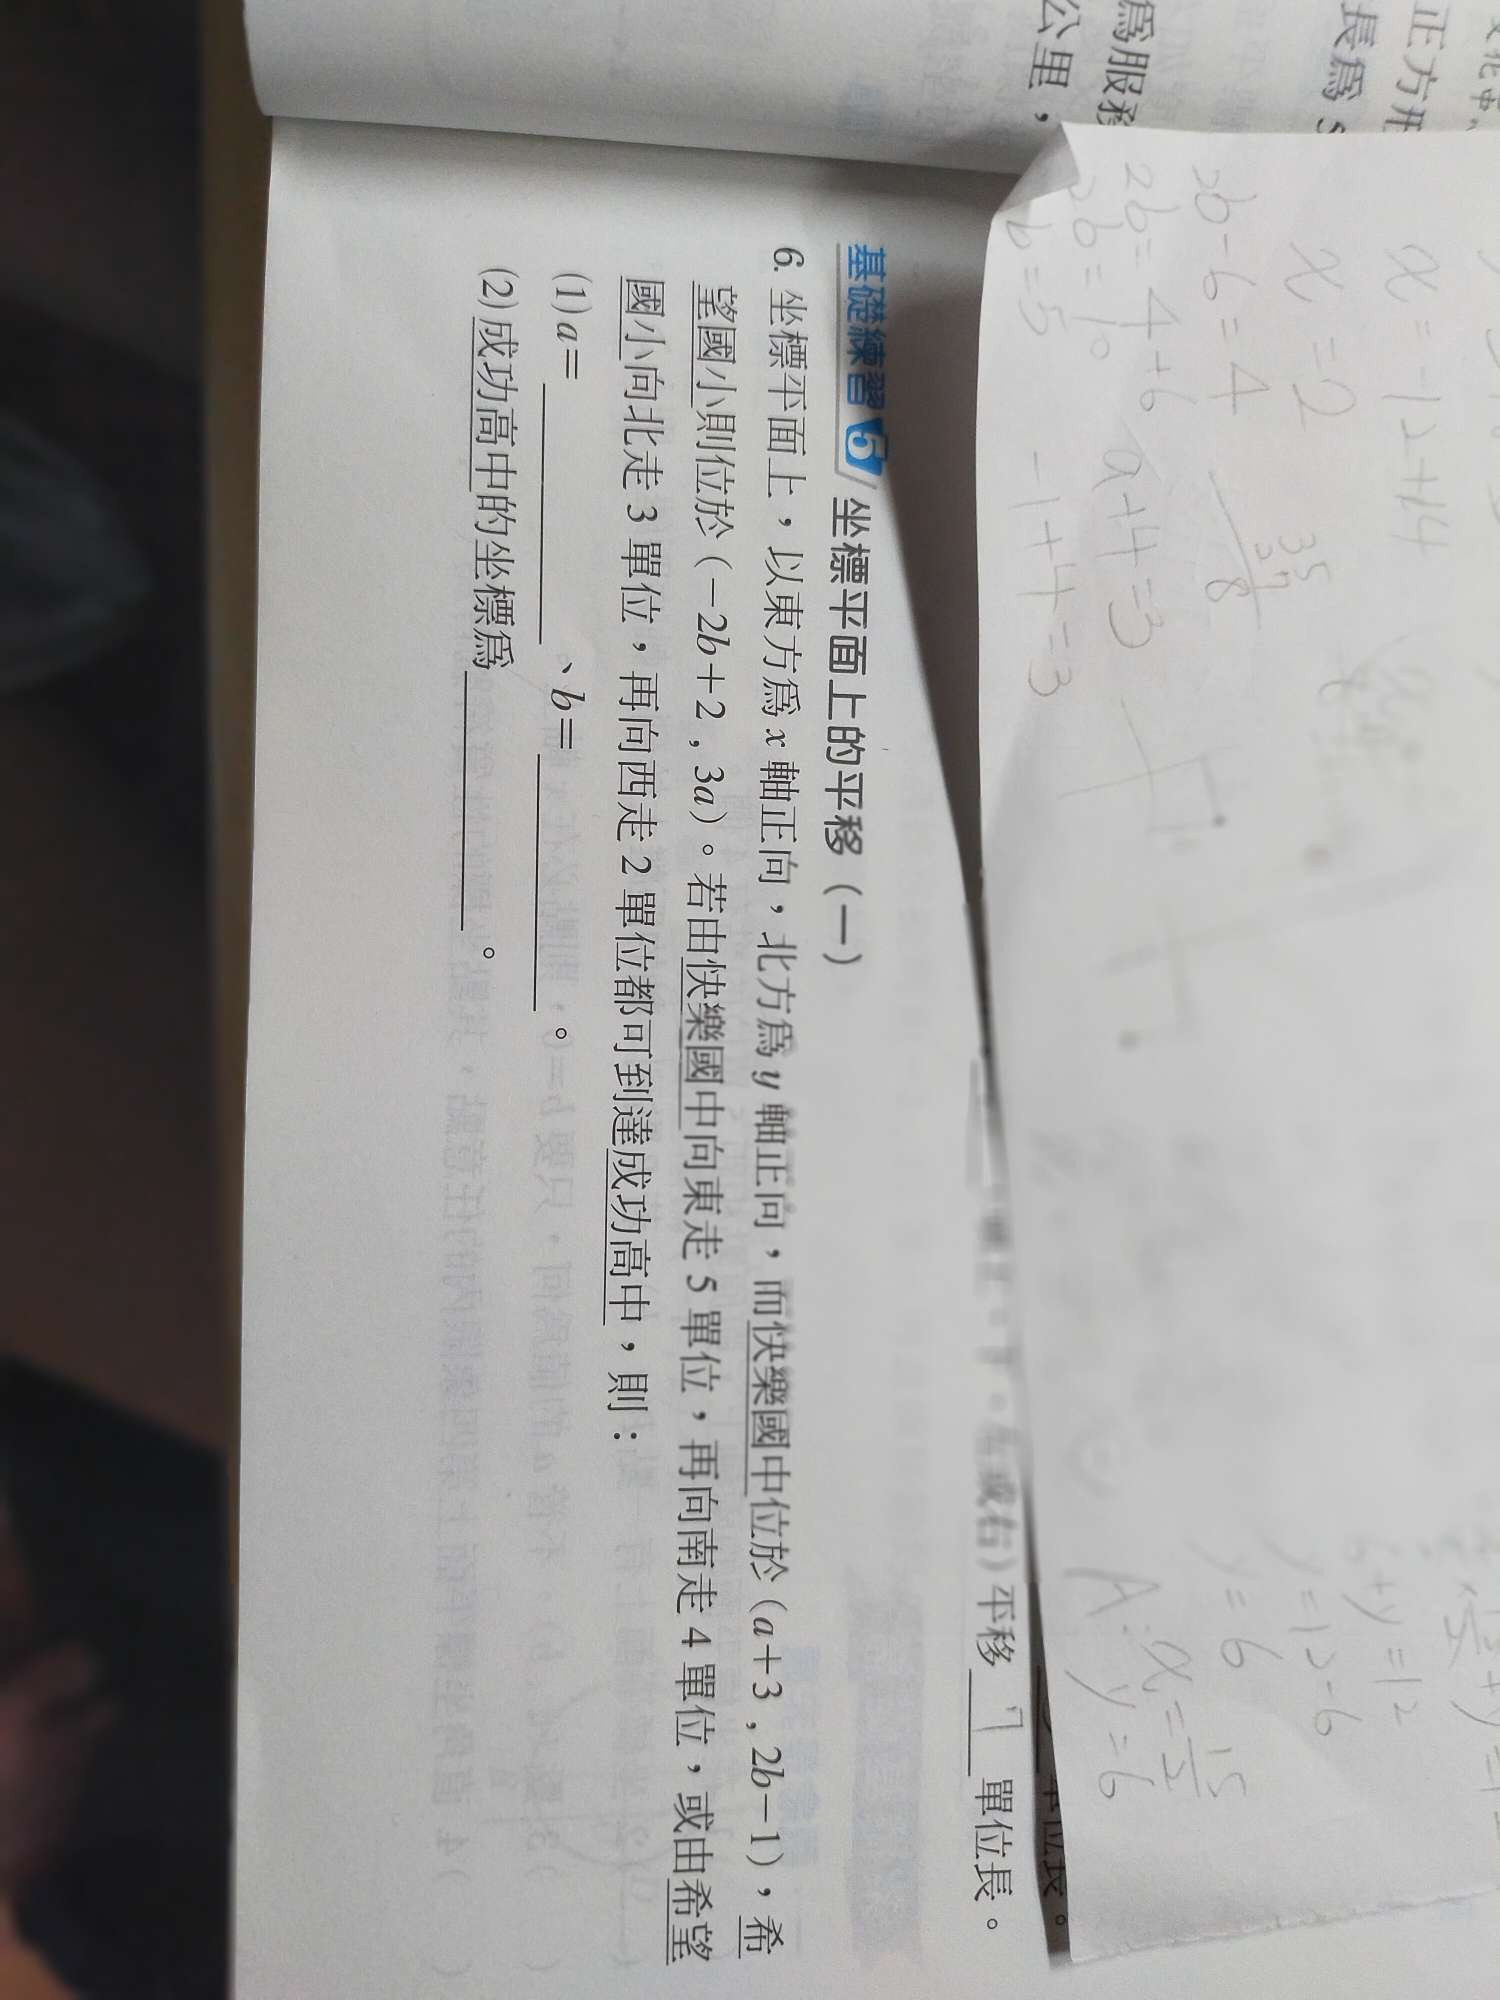 正方形
長為 5
為服務
公里，
x=-12+14
x=2
2b-6=4
2b=4+6
2b=10
b=5
35
27
8
a+4=3
-1+4=3
6+y=12
y=12-6
y=6
A: x=15/2
y=6
單位長。
或右）平移 7 單位長。
基礎練習 6 坐標平面上的平移（一）
6. 坐標平面上，以東方為 x 軸正向，北方為 y 軸正向，而快樂國中位於 (a+3 , 2b-1)，希
望國小則位於 (-2b+2 , 3a)。若由快樂國中向東走 5 單位，再向南走 4 單位，或由希望
國小向北走 3 單位，再向西走 2 單位都可到達成功高中，則：
(1) a=＿＿＿＿、b=＿＿＿＿。
(2) 成功高中的坐標為＿＿＿＿。